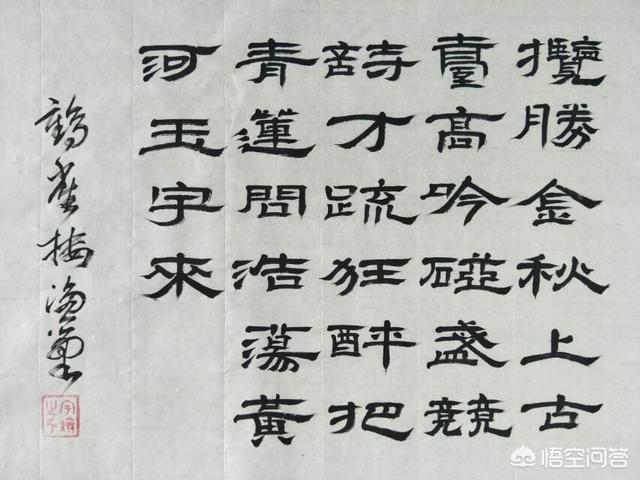 攬勝金秋上古
臺高吟碰盞競
詩才疏狂醉把
青蓮問浩蕩黃
河玉宇來
鸛雀樓
悟空问答